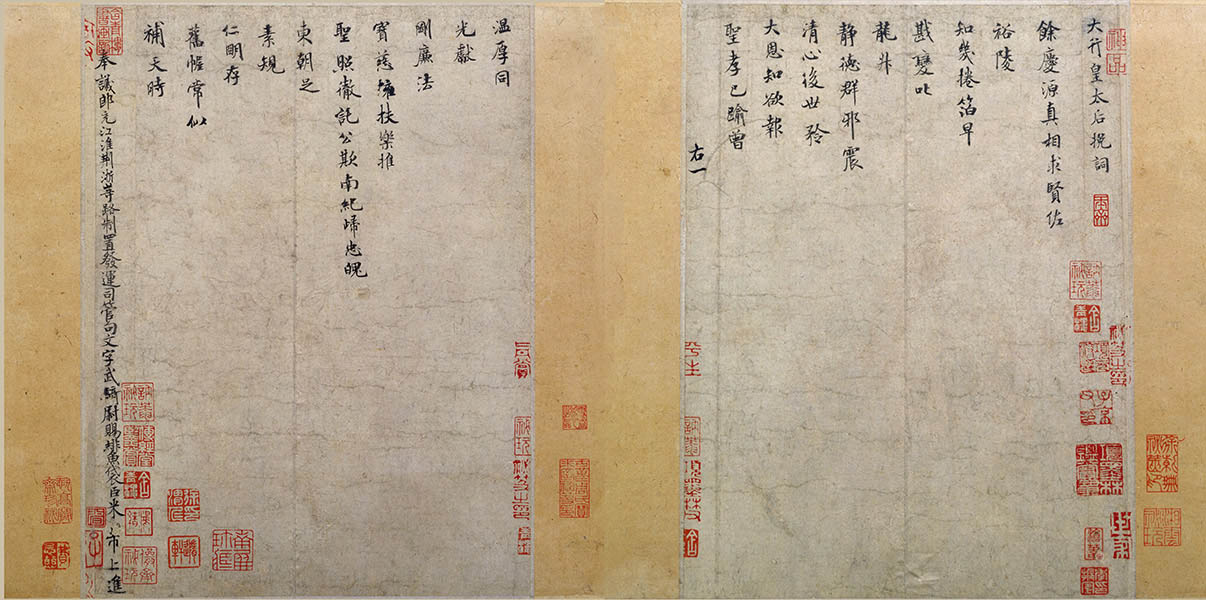 大行皇太后挽詞
餘慶源真相求賢佐
裕陵
知幾捲箔早
戡變叱
龍升
靜德群邪震
清心後世矜
大恩知欲報
聖孝已踰曾
右一
温厚同
光獻
剛廉法
寶慈擁扶樂推
聖照徹託公欺南紀歸忠魄
東朝足
素規
仁明存
舊幄常似
補天時
奉議郎充江淮荆浙等路制置發運司管勾文字武騎尉賜緋魚袋臣米芾上進